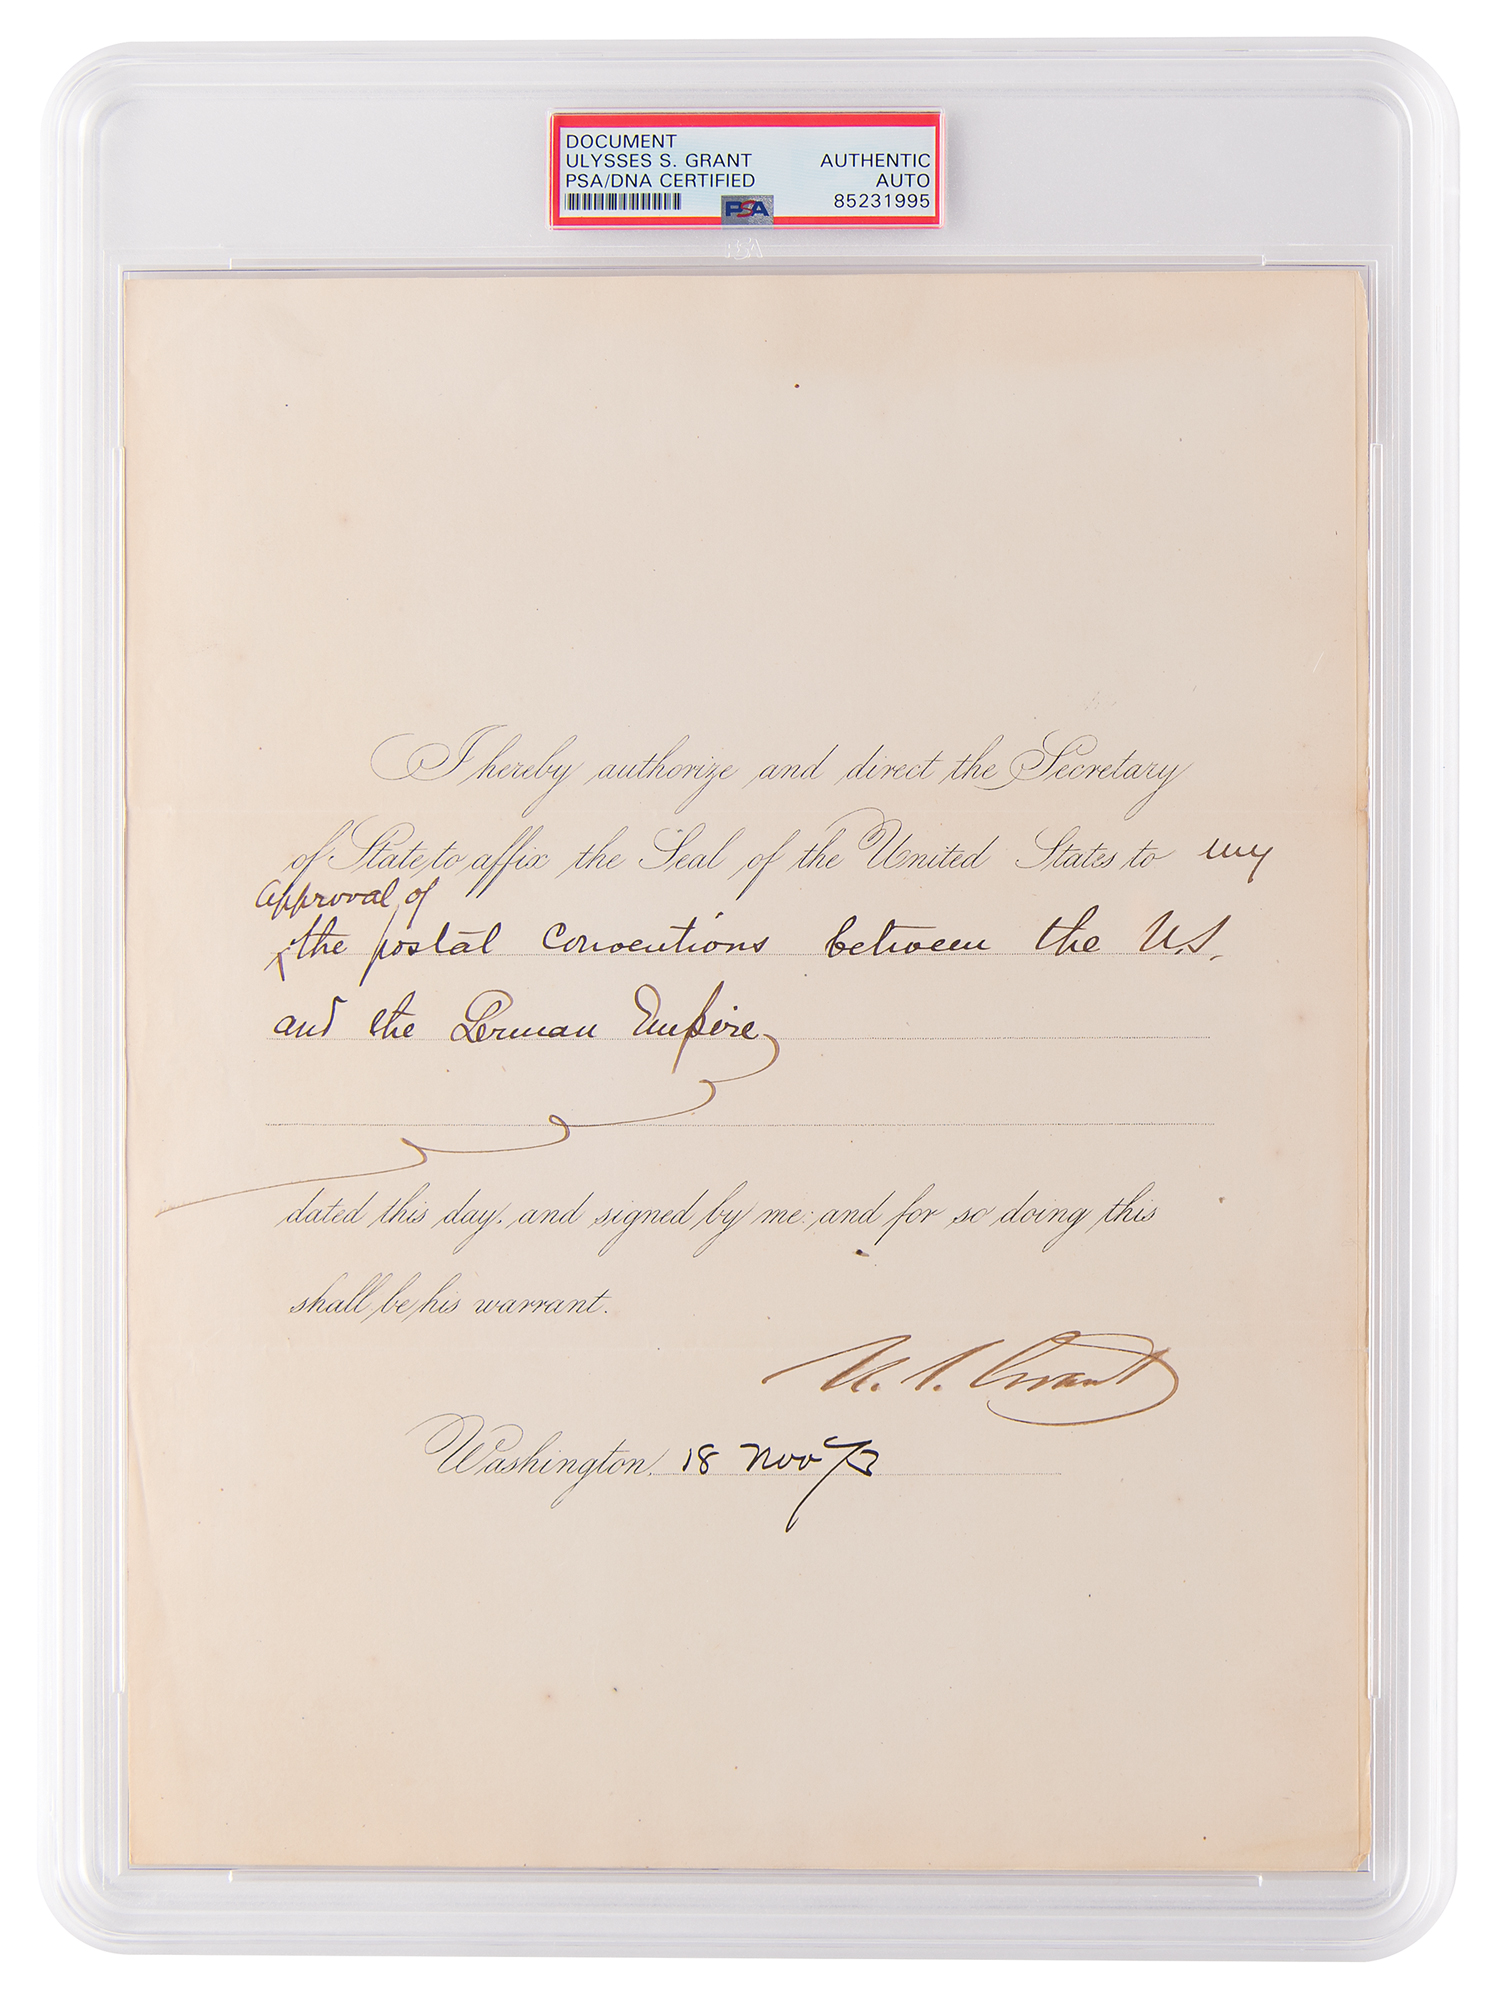 DOCUMENT
ULYSSES S. GRANT AUTHENTIC
PSA/DNA CERTIFIED AUTO
PSA 85231995
I hereby authorize and direct the Secretary
of State to affix the Seal of the United States to my
approval of
the postal conventions between the U.S.
and the German Empire
dated this day, and signed by me: and for so doing this
shall be his warrant.
U. S. Grant
Washington, 18 Nov 73